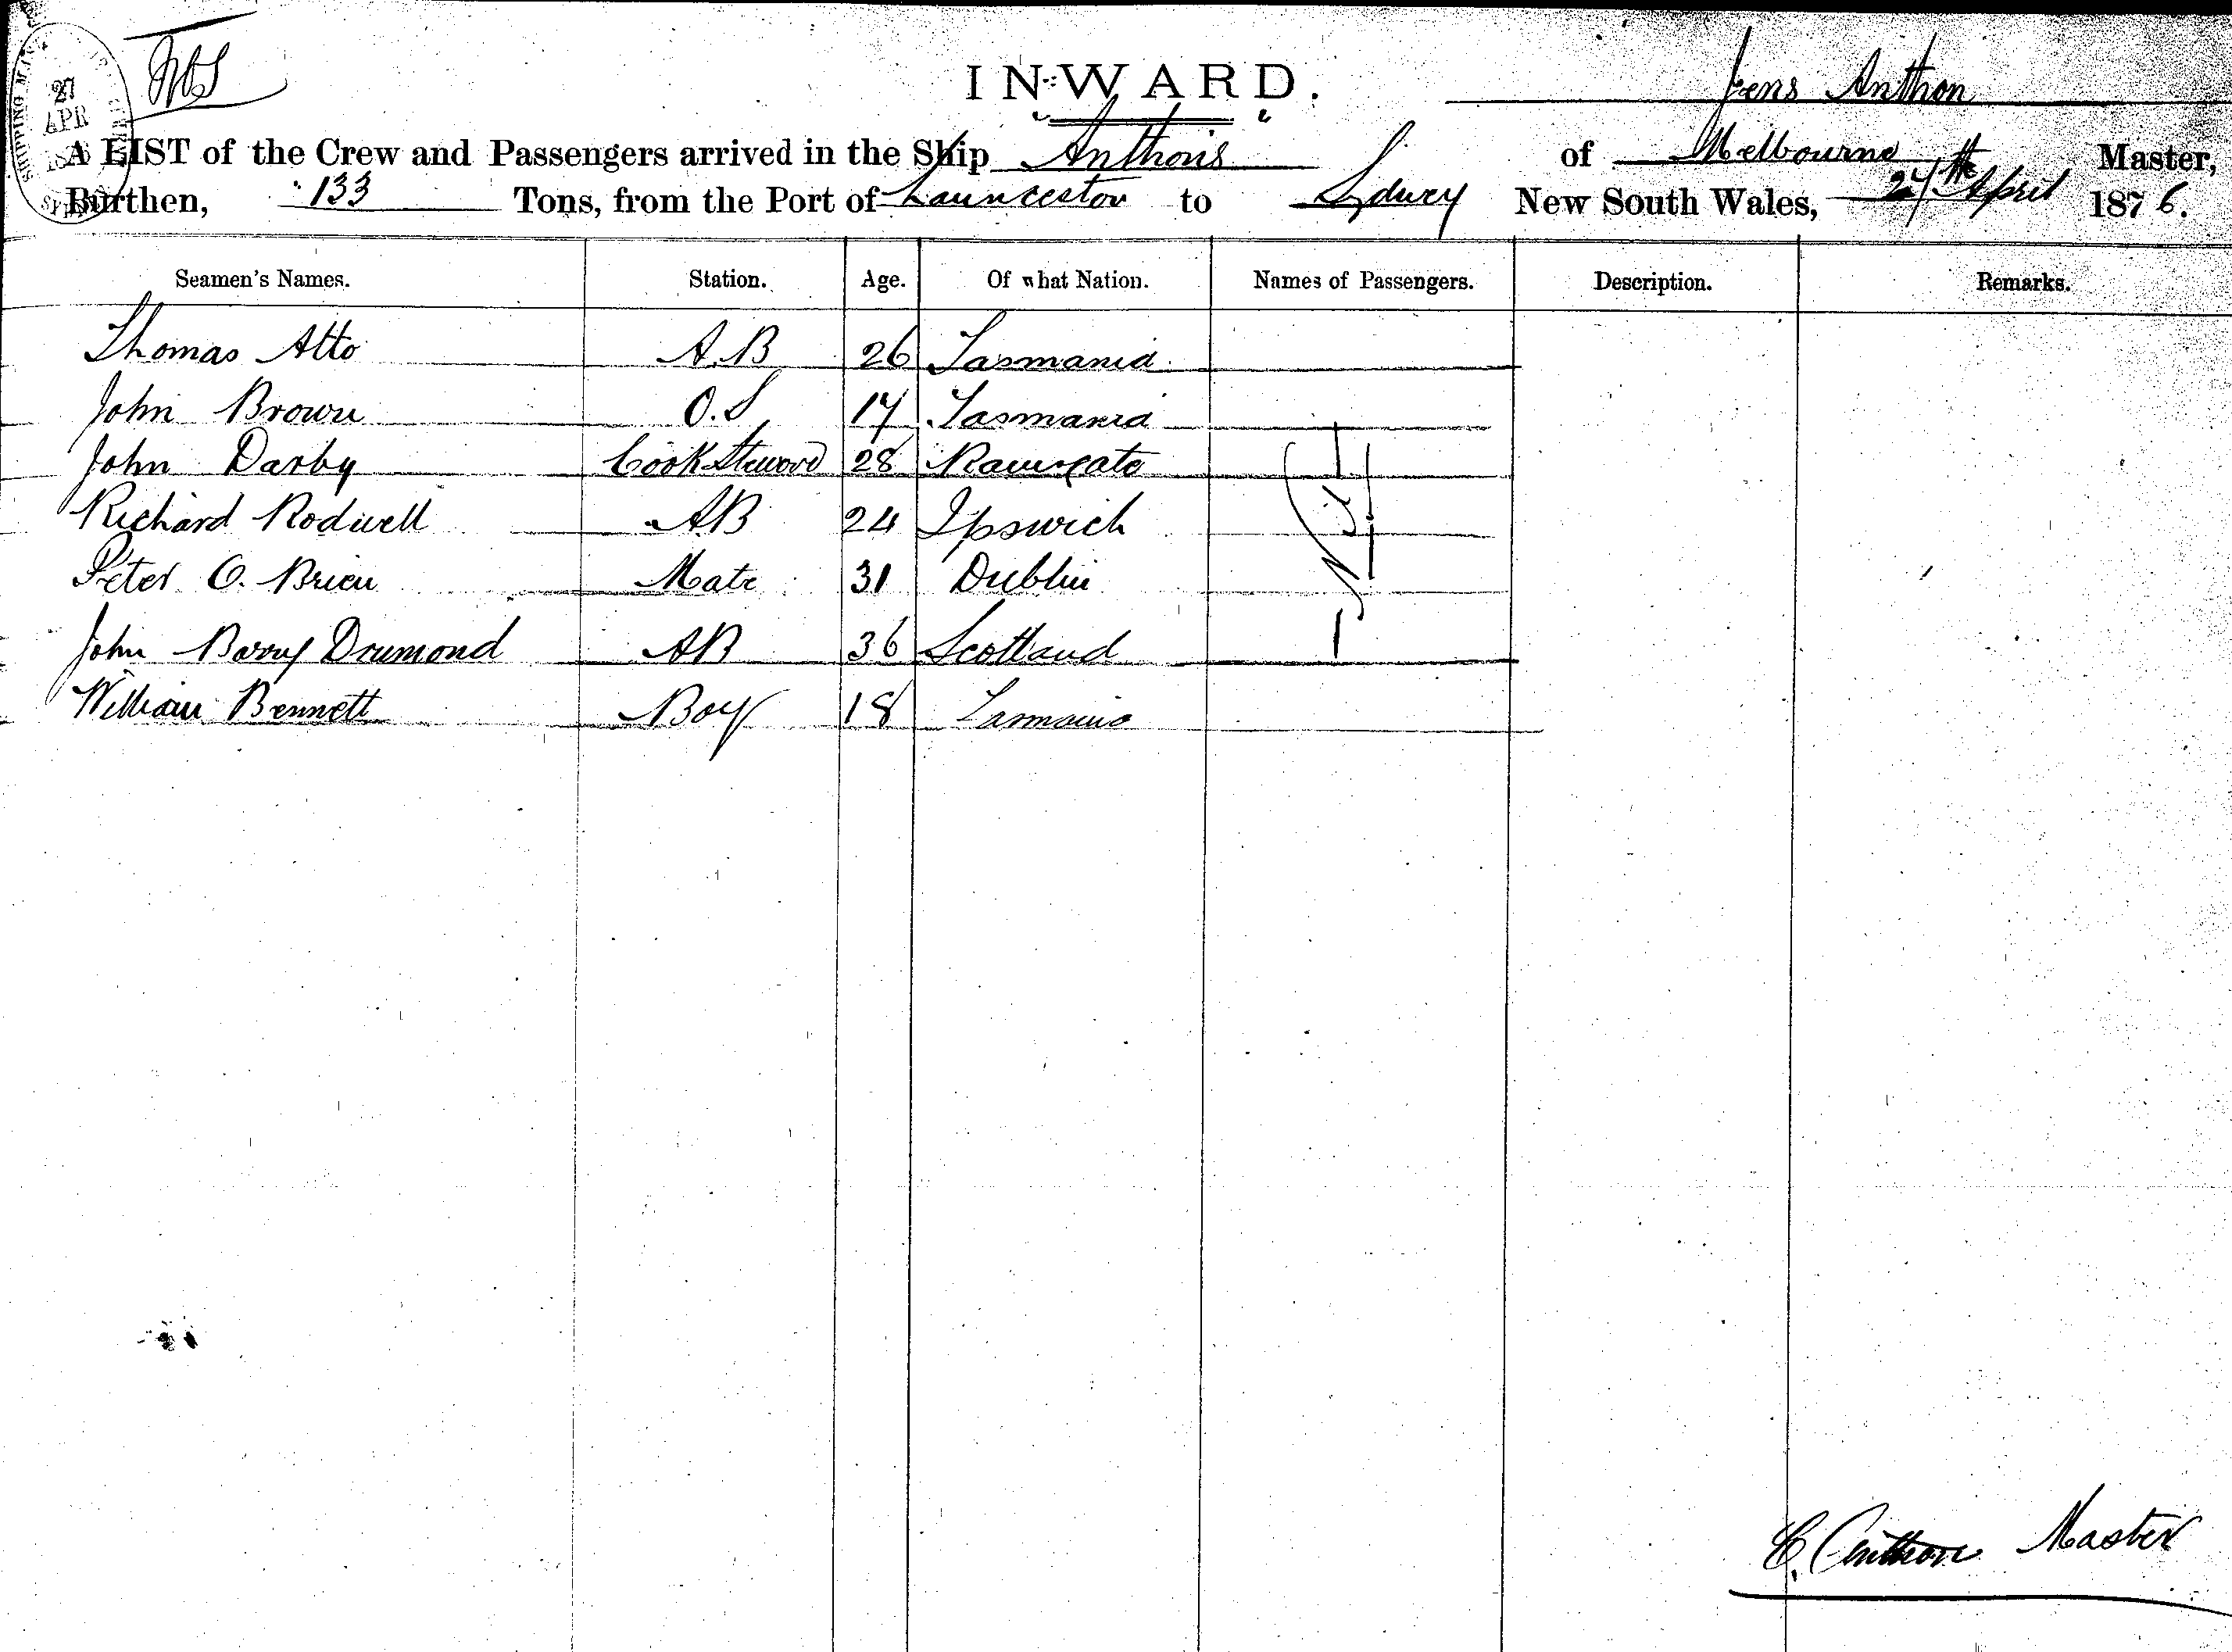 27
APR
SHIPPING MAST
INWARD.
Jens Anthon
A LIST of the Crew and Passengers arrived in the Ship Anthons of Melbourne Master,
Burthen, 133 Tons, from the Port of Launceston to Sydney New South Wales, 27th April 1876.
Seamen's Names. Station. Age. Of what Nation. Names of Passengers. Description. Remarks.
Thomas Atto A.B 26 Tasmania
John Brown O.S 17 Tasmania
John Darby Cook Steward 28 Ramsgate
Richard Rodwell AB 24 Ipswich
Peter O. Brien Mate 31 Dublin
John Barry Drumond AB 36 Scotland
William Bennett Boy 18 Tasmania
Nil
C. Anthon Master